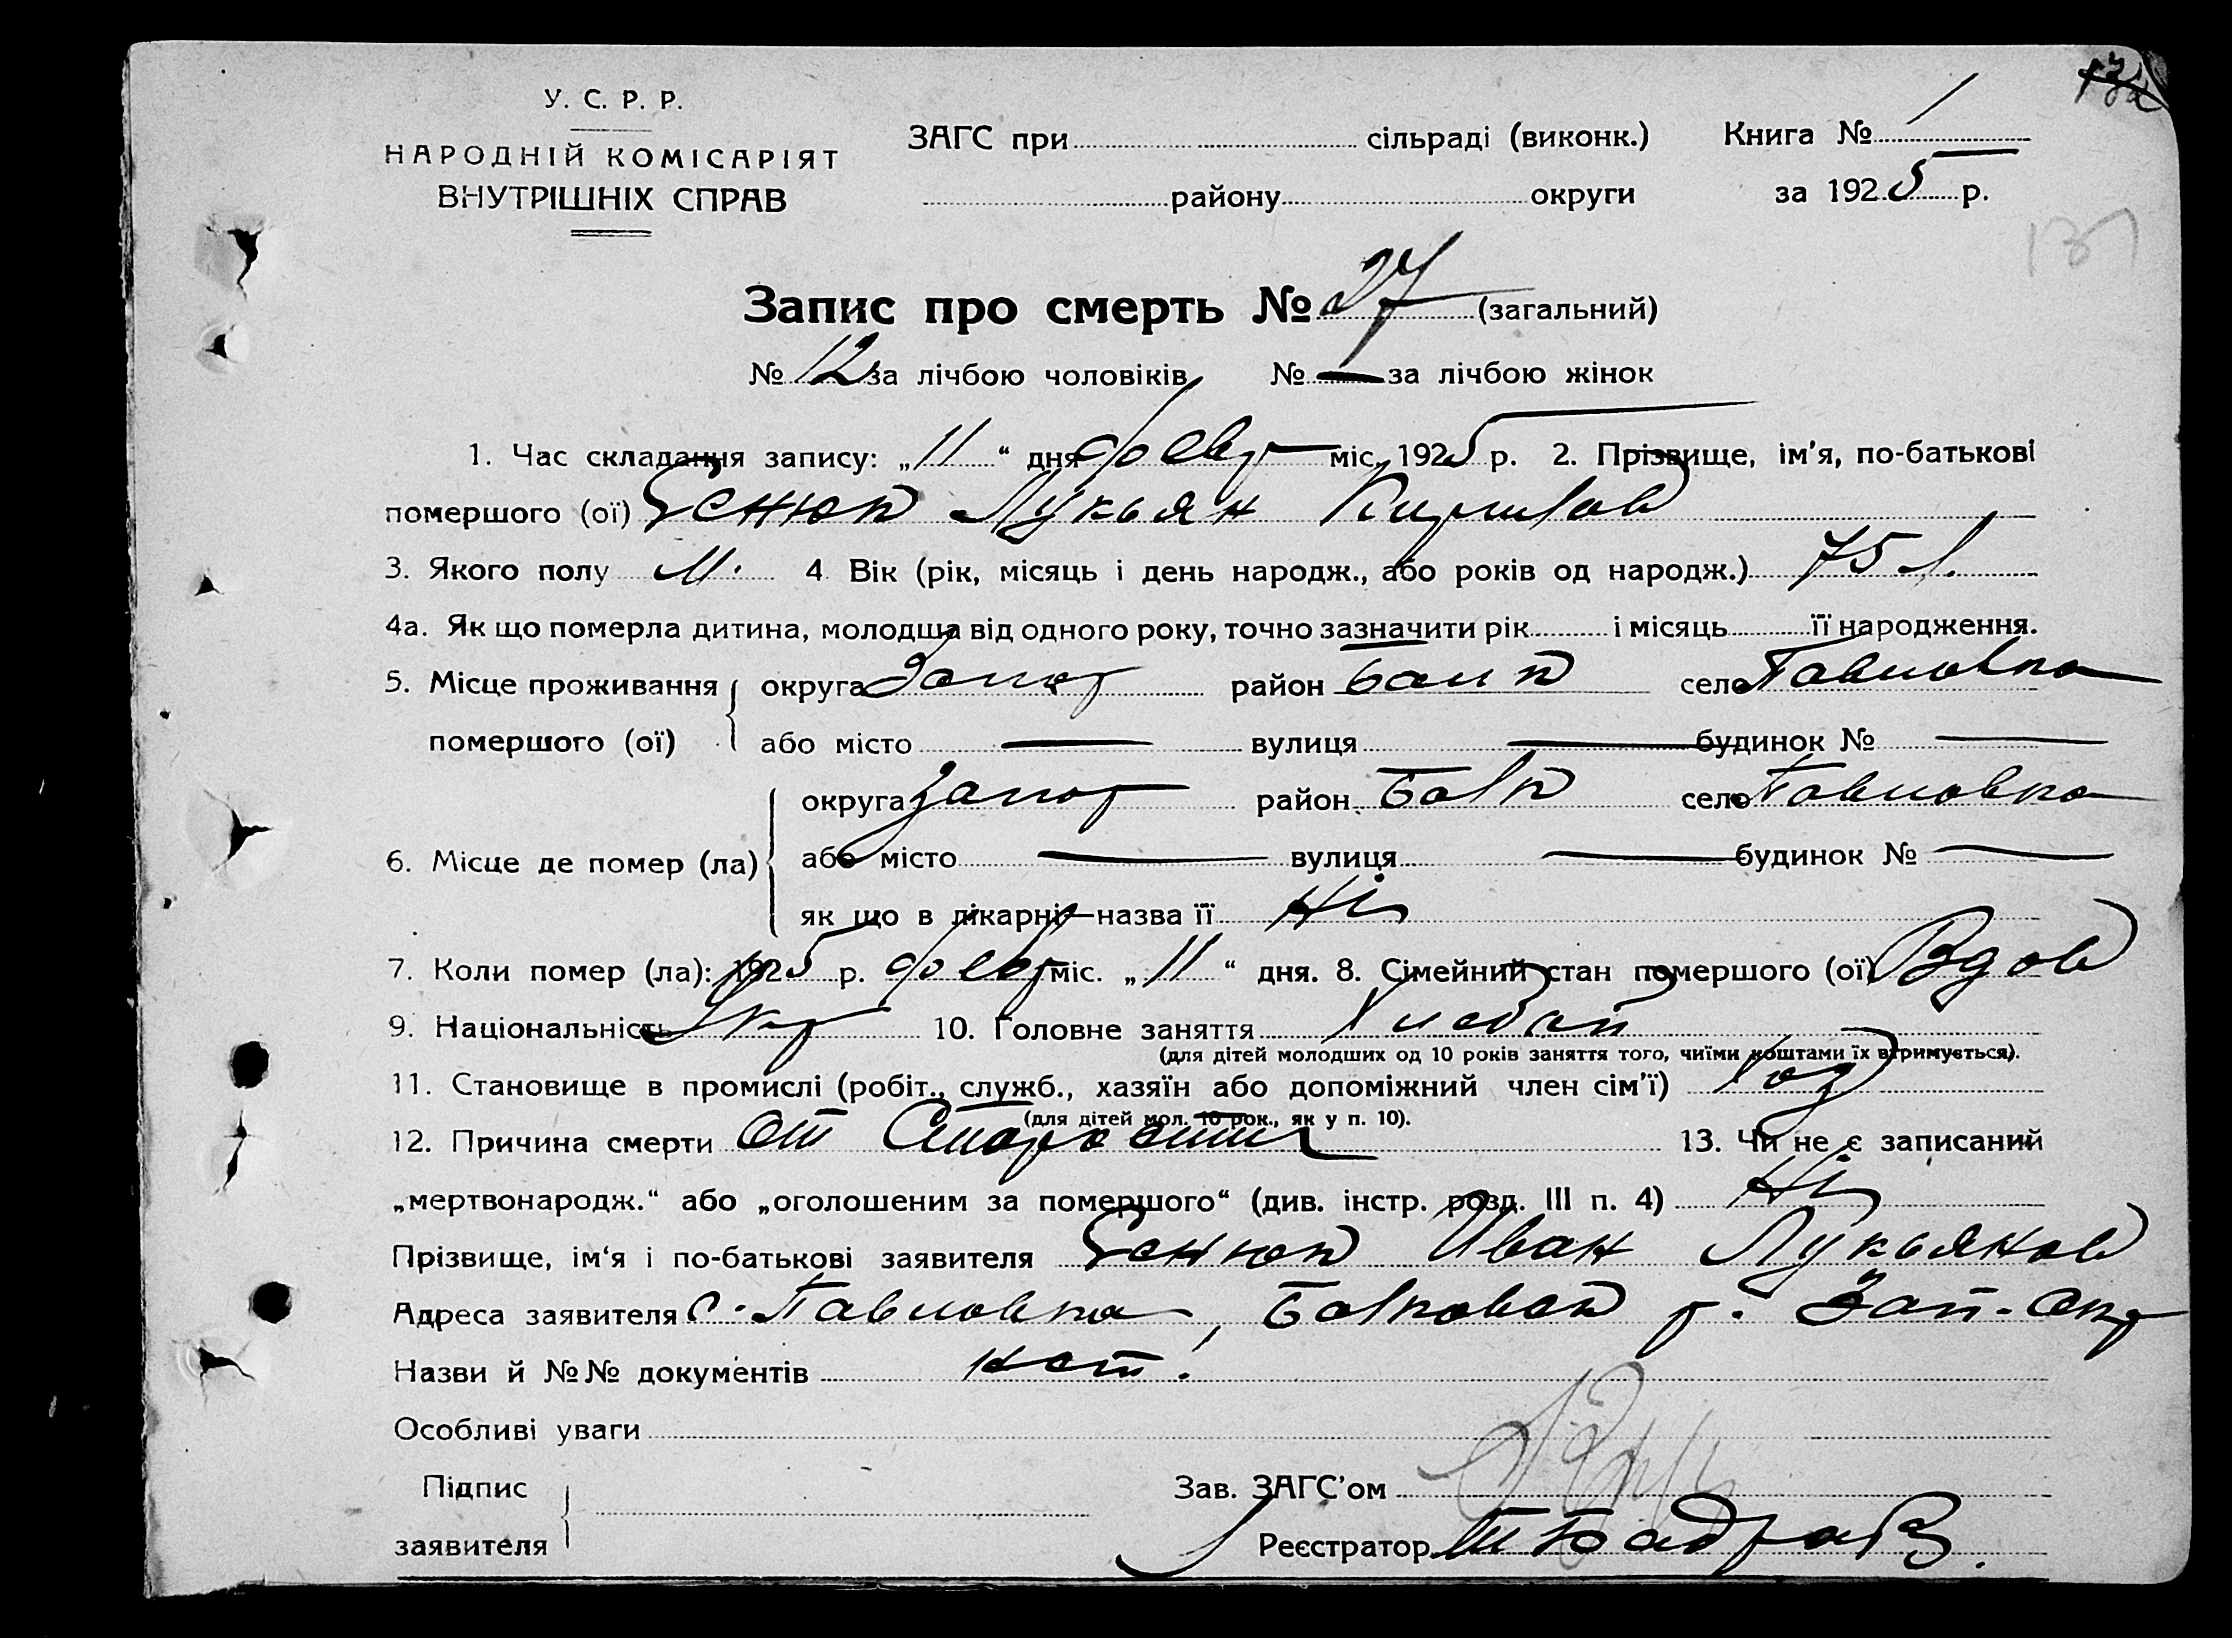 У. С. Р. Р.
НАРОДНІЙ КОМІСАРІЯТ
ВНУТРІШНІХ СПРАВ
ЗАГС при сільраді (виконк.) Книга № 1
району округи за 1925 р.
Запис про смерть № 27 (загальний)
№ 12 за лічбою чоловіків № — за лічбою жінок
1. Час складання запису: „11“ дня февр міс. 1925 р. 2. Прізвище, ім'я, по-батькові
помершого (ої) Лукьян Кирилов
3. Якого полу М. 4. Вік (рік, місяць і день народж., або років од народж.) 75 л.
4а. Як що померла дитина, молодша від одного року, точно зазначити рік і місяць її народження.
5. Місце проживання округа Запор район Балк село Павловка
помершого (ої) або місто — вулиця — будинок № —
округа Запор район Балк село Павловка
6. Місце де помер (ла) або місто — вулиця — будинок № —
як що в лікарні—назва її Ні
7. Коли помер (ла): 1925 р. февр міс. „11“ дня. 8. Сімейний стан помершого (ої) Вдов
9. Національність Укр 10. Головне заняття Хлебоп
(для дітей молодших од 10 років заняття того, чиїми коштами їх втримується).
11. Становище в промислі (робіт., служб., хазяїн або допоміжний член сім'ї)
(для дітей мол. 10 рок., як у п. 10).
12. Причина смерти от Старости 13. Чи не є записаний
„мертвонародж.“ або „оголошеним за помершого“ (див. інстр. розд. III п. 4) Ні
Прізвище, ім'я і по-батькові заявителя Иван Лукьянов
Адреса заявителя с. Павловка, Балковск р. Зап-окр
Назви й №№ документів нет.
Особливі уваги
Підпис Зав. ЗАГС'ом
заявителя Реєстратор